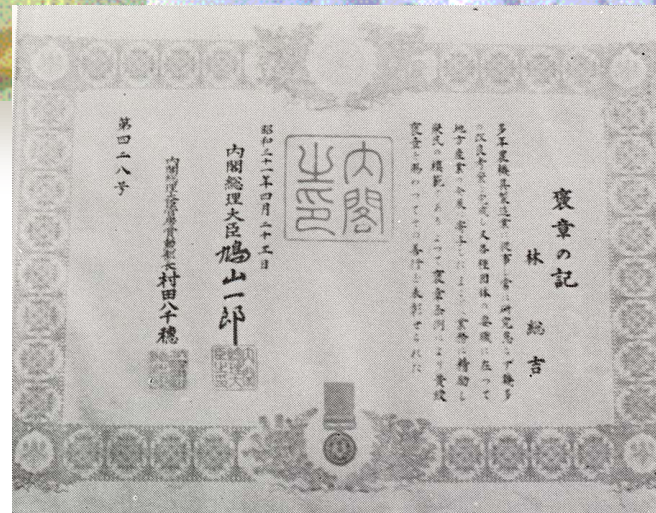 褒章の記
林 総吉
多年農機具製造業に従事し常に研究怠らず幾多
の改良考案を完成し又各種団体の要職に在つて
地方産業の発展に寄与しまことに業務に精励し
衆民の模範であるよつて褒章条例により黄綬
褒章を賜わつてその善行を表彰せられた
内閣之印
昭和三十一年四月二十三日
内閣総理大臣 鳩山一郎
内閣総理大臣官房賞勲部長 村田八千穂
第四二八号